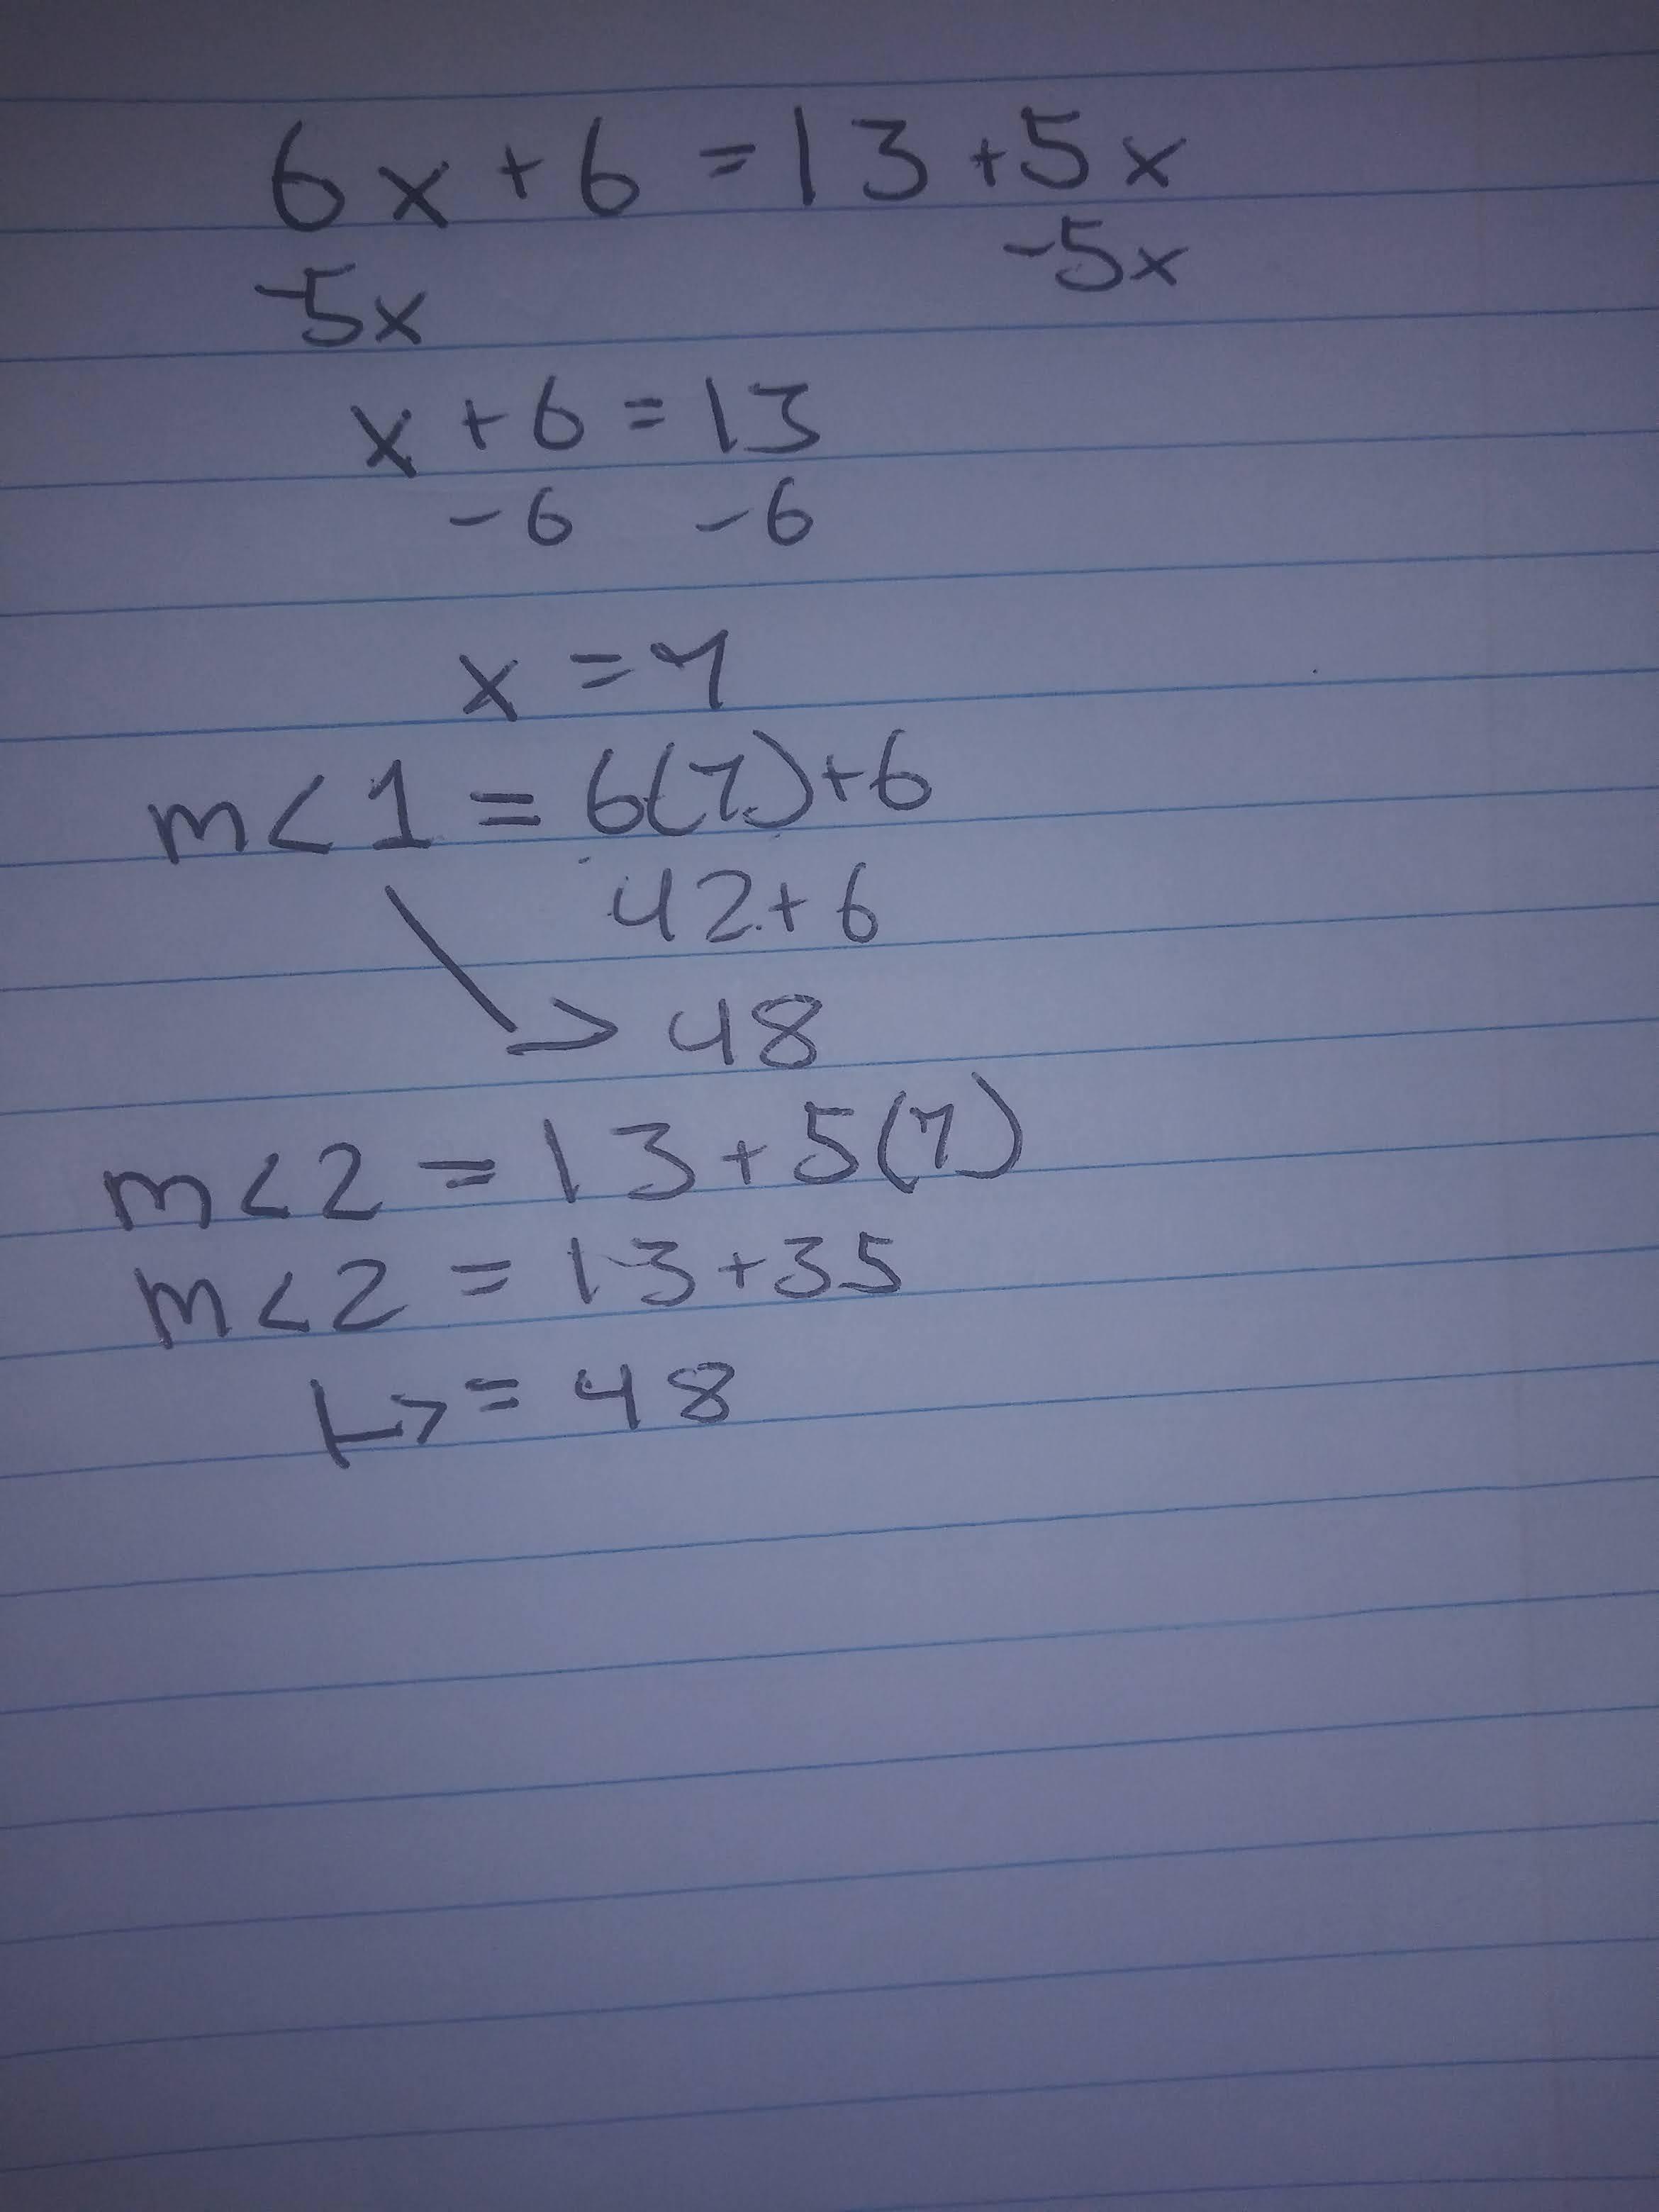 6x + 6 = 13 + 5x
-5x -5x
x + 6 = 13
-6 -6
x = 7
m<1 = 6(7)+6
42+6
> 48
m<2 = 13+5(7)
m<2 = 13+35
> = 48